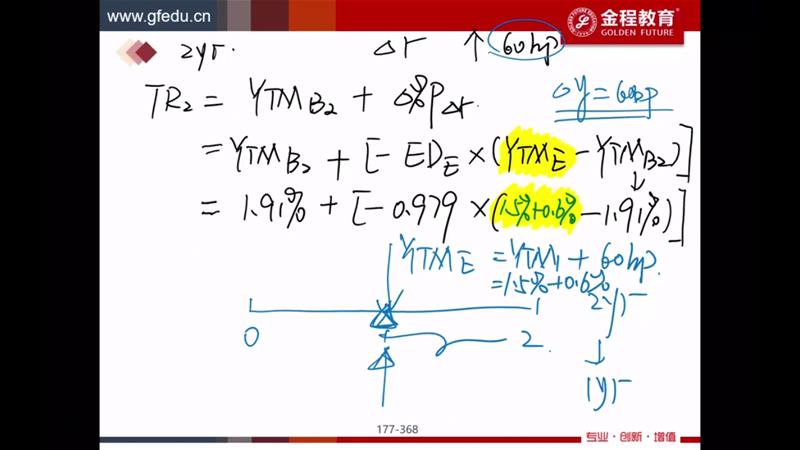 www.gfedu.cn
金程教育
GOLDEN FUTURE
2yr. Δr ↑ 60bp
TR₂ = YTM_B₂ + Δ%P_Δr. Δy = 60bp
= YTM_B₂ + [- ED_E × (YTM_E - YTM_B₂)]
= 1.91% + [- 0.979 × (1.5%+0.6% - 1.91%)]
YTM_E = YTM₁ + 60bp.
= 1.5% + 0.6%
1 2yr
0 2
1yr
177-368
专业·创新·增值